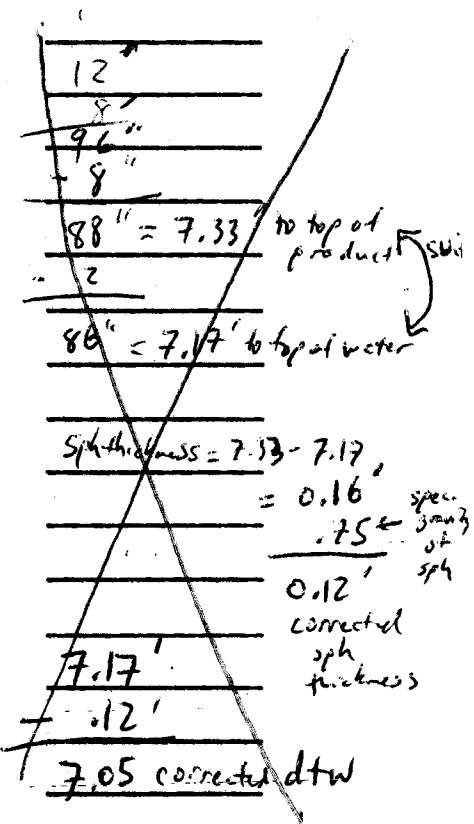 12"
8'
96"
- 8"
88" = 7.33' to top of
product
- 2
86" = 7.17' to top of water
Sph thickness = 7.33 - 7.17
= 0.16'
.75 ← spec.
gravity
of
sph
0.12'
corrected
sph
thickness
7.17'
- .12'
7.05 corrected dtw